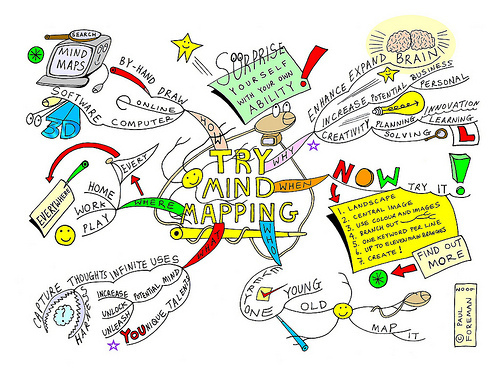 TRY
MIND
MAPPING
HOW
BY-HAND
DRAW
ONLINE
COMPUTER
SOFTWARE
3D
SEARCH
MIND
MAPS
SURPRISE
YOURSELF
WITH YOUR OWN
ABILITY
!
WHY
ENHANCE EXPAND BRAIN
INCREASE POTENTIAL BUSINESS
PERSONAL
CREATIVITY
PLANNING
SOLVING
INNOVATION
LEARNING
L
WHEN
NOW
TRY IT
!
1. LANDSCAPE
2. CENTRAL IMAGE
3. USE COLOUR AND IMAGES
4. BRANCH OUT
5. ONE KEYWORD PER LINE
6. UP TO ELEVEN MAIN BRANCHES
7. CREATE!
FIND OUT
MORE
WHO
ONE
YOUNG
OLD
MAP
IT
WHAT
CAPTURE
THOUGHTS INFINITE USES
INCREASE
UNLOCK
UNLEASH
POTENTIAL MIND
YOUNIQUE TALENT
WHERE
HOME
WORK
PLAY
EVERY
EVERYWHERE
© PAUL
FOREMAN